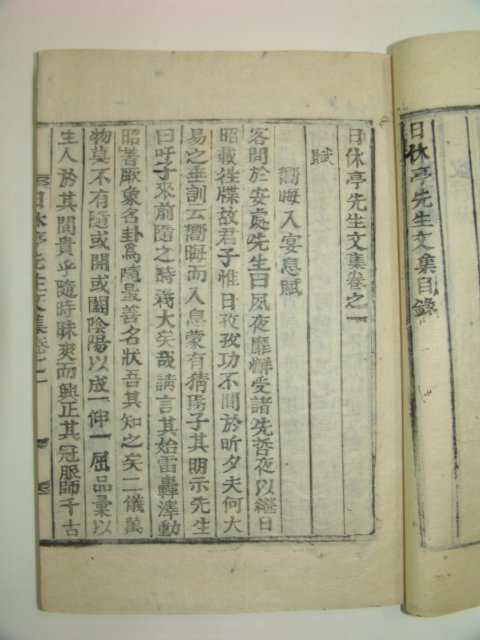 日休亭先生文集目錄
日休亭先生文集卷之一
賦
嚮晦入宴息賦
客問於安處先生曰夙夜靡懈受諸先哲夜以繼日
昭載徃牒故君子惟日孜孜功不間於昕夕夫何大
易之垂訓云嚮晦而入息蒙有猜焉子其明示先生
曰吁子來前隨之時義大矣哉請言其始雷轟澤動
昭著厥象名卦爲隨最善名狀吾其知之矣二儀萬
物莫不有隨或開或闔陰陽以成一伸一屈品彙以
生人於其間貴乎隨時昧爽而興正其冠服師千古
日休亭先生文集卷之一